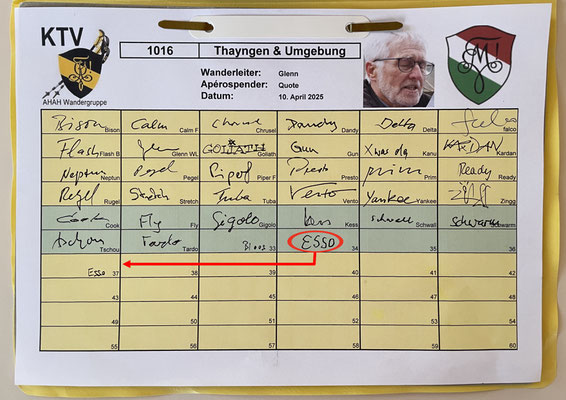 KTV
AHAH Wandergruppe
1016 Thayngen & Umgebung
Wanderleiter: Glenn
Apérospender: Quote
Datum: 10. April 2025
Bison Bison Calm Calm F Chrusel Dandy Dandy Delta Delta falco
Flash Flash B Glenn WL GOLIATH Goliath Gun Gun Kanu KARDAN Kardan
Neptun Neptun Pegel Pegel Piper F Presto Presto prim Prim Ready Ready
Regel Rugel Stretch Stretch Tuba Tuba Vento Vento Yankee Yankee Zingg
Cook Cook Fly Fly Gigolo Gigolo Kess schwall Schwall Schwarm Schwarm
Tschou Tschou Tardo Tardo 33 ESSO 34 35 36
Esso 37 38 39 40 41 42
43 44 45 46 47 48
49 50 51 52 53 54
55 56 57 58 59 60